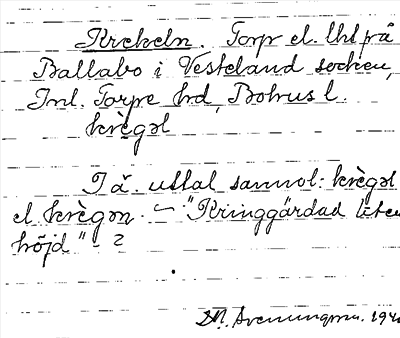 Krekeln. Torp el. lht på
Ballabo i Vesterland socken,
Inl. Torpe hd, Bohus l.
krègəl
I ä. uttal sannol: krègəl
el krègən. "Kringgärdad liten
höjd" ?